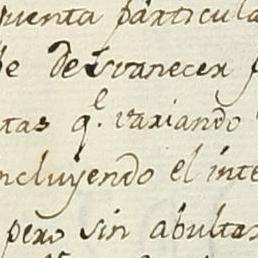 uenta particula
de desvanecer
tas q.e variando
ncluyendo el inte
pero sin abultas